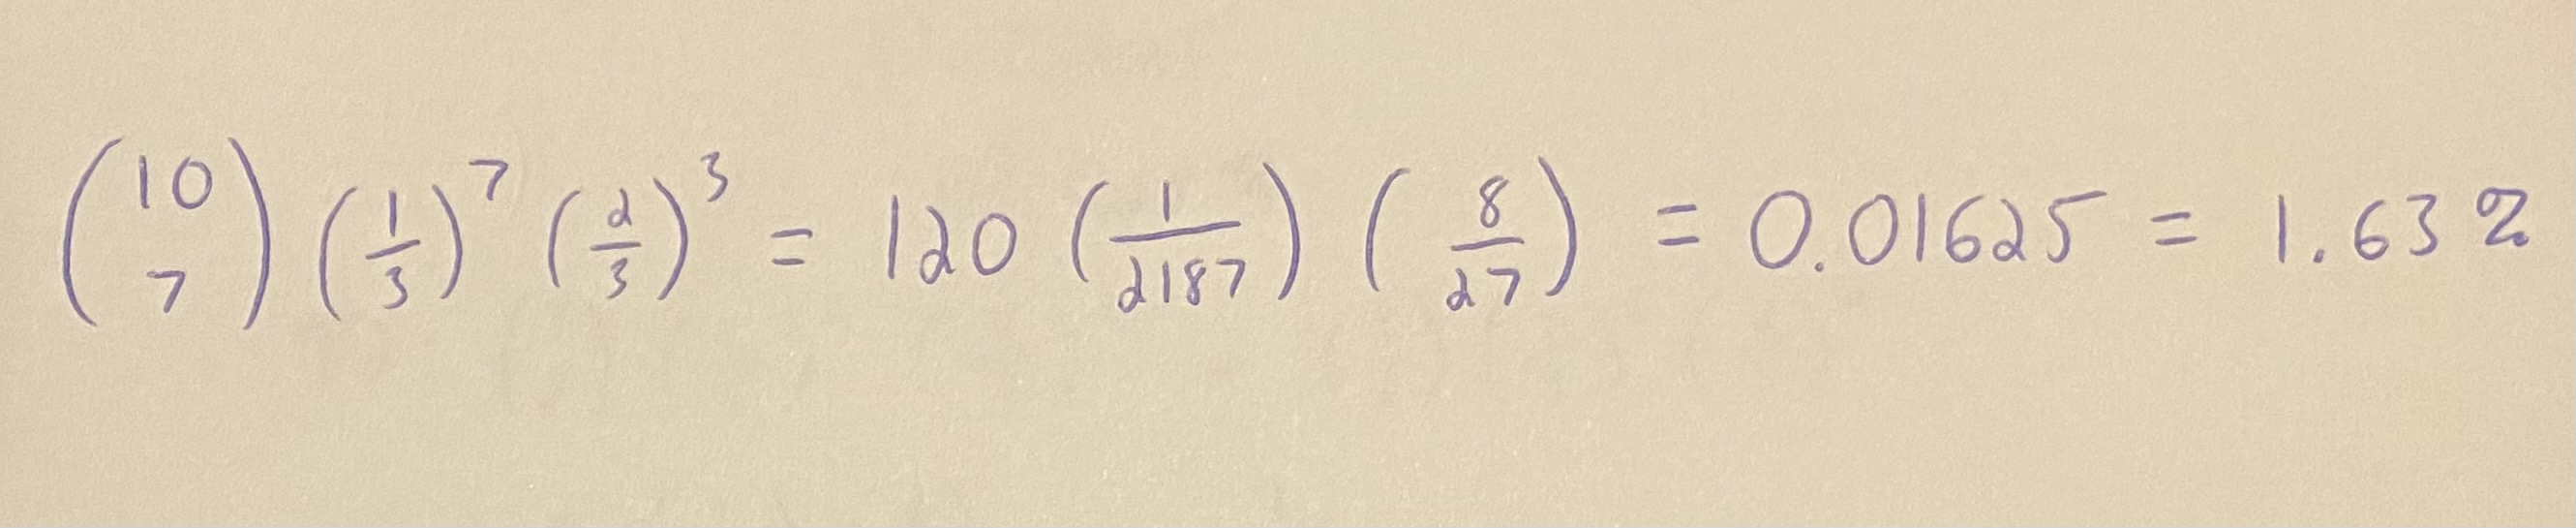 (10 7) (1/3)^7 (2/3)^3 = 120 (1/2187) (8/27) = 0.01625 = 1.63%